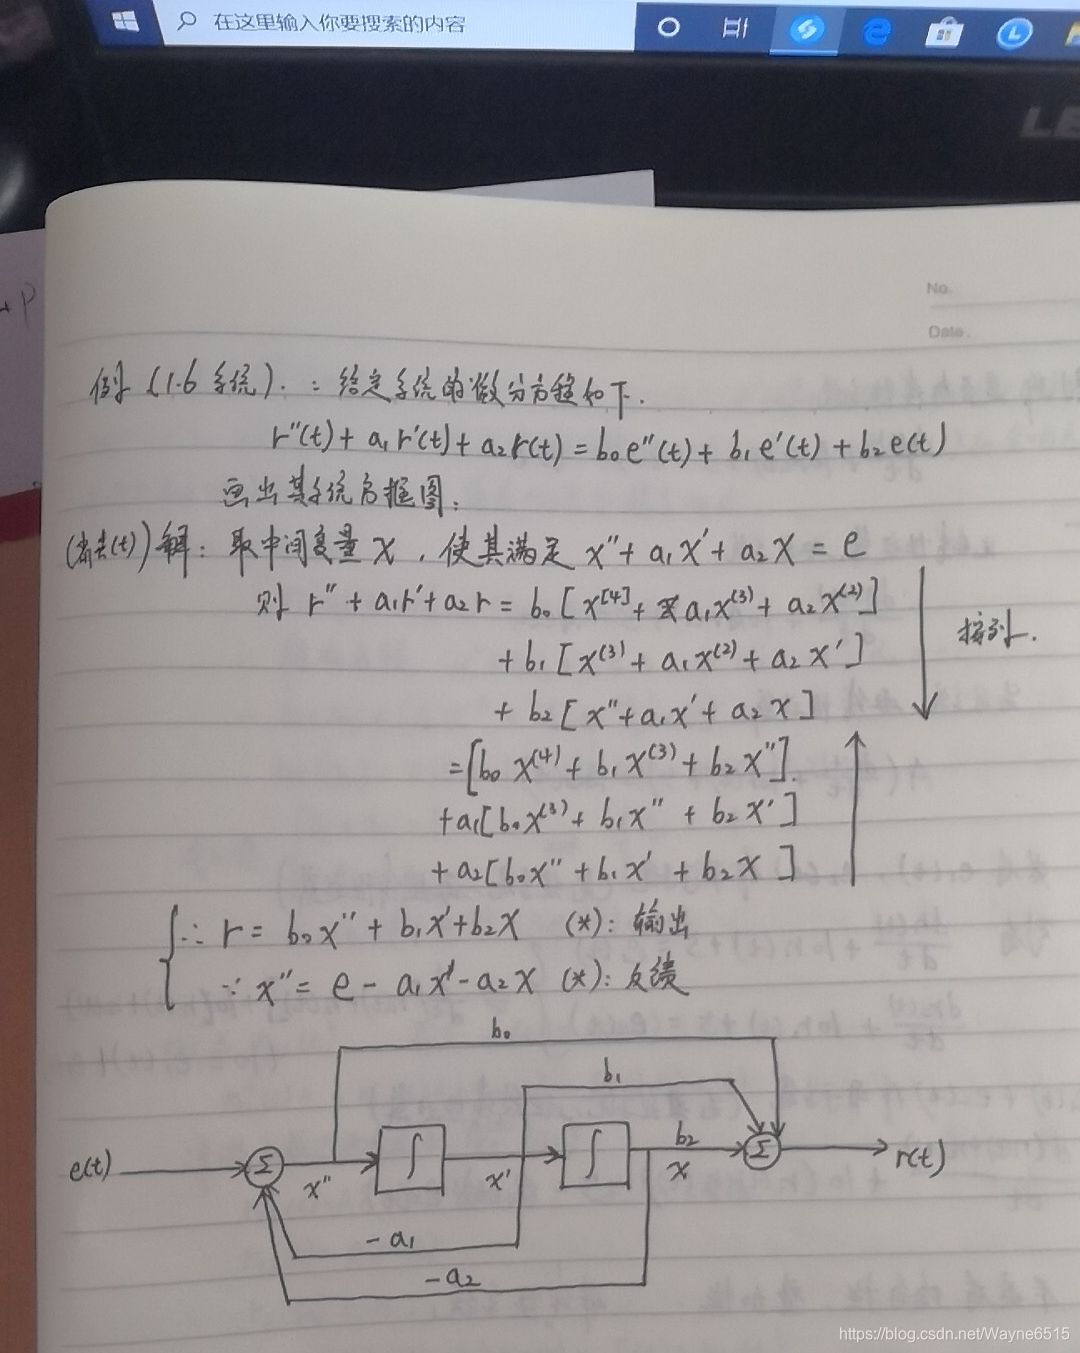 在这里输入你要搜索的内容
LE
No.
Date.
+ P
例 (1.6 系统). : 给定系统的微分方程如下.
r''(t) + a₁r'(t) + a₂r(t) = b₀e''(t) + b₁e'(t) + b₂e(t)
画出其系统方框图:
(省去(t)) 解: 取中间变量 x , 使其满足 x'' + a₁x' + a₂x = e
则 r'' + a₁r' + a₂r = b₀[x[4] + a₁x⁽³⁾ + a₂x⁽²⁾]
+ b₁[x⁽³⁾ + a₁x⁽²⁾ + a₂x']
按列.
+ b₂[x'' + a₁x' + a₂x]
=[b₀x⁽⁴⁾ + b₁x⁽³⁾ + b₂x''].
+a₁[b₀x⁽³⁾ + b₁x'' + b₂x']
+ a₂[b₀x'' + b₁x' + b₂x]
∴ r = b₀x'' + b₁x' + b₂x (*): 输出
∵ x'' = e - a₁x' - a₂x (*): 反馈
b₀
b₁
e(t) Σ x'' ∫ x' ∫ b₂ x Σ r(t)
-a₁
-a₂
https://blog.csdn.net/Wayne6515